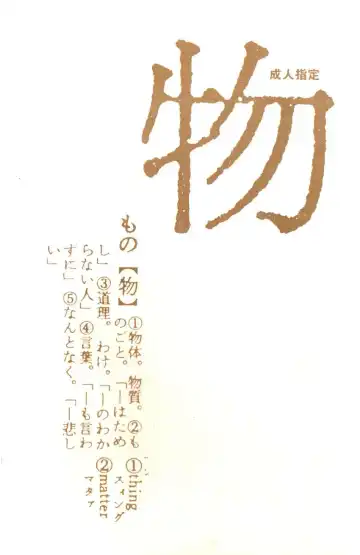 物
成人指定
もの【物】①物体。物質。②も
のごと。「―はため
し」③道理。わけ。「―のわか
らない人」④言葉。「―も言わ
ずに」⑤なんとなく。「―悲し
い」
①thing
スィング
②matter
マタァ